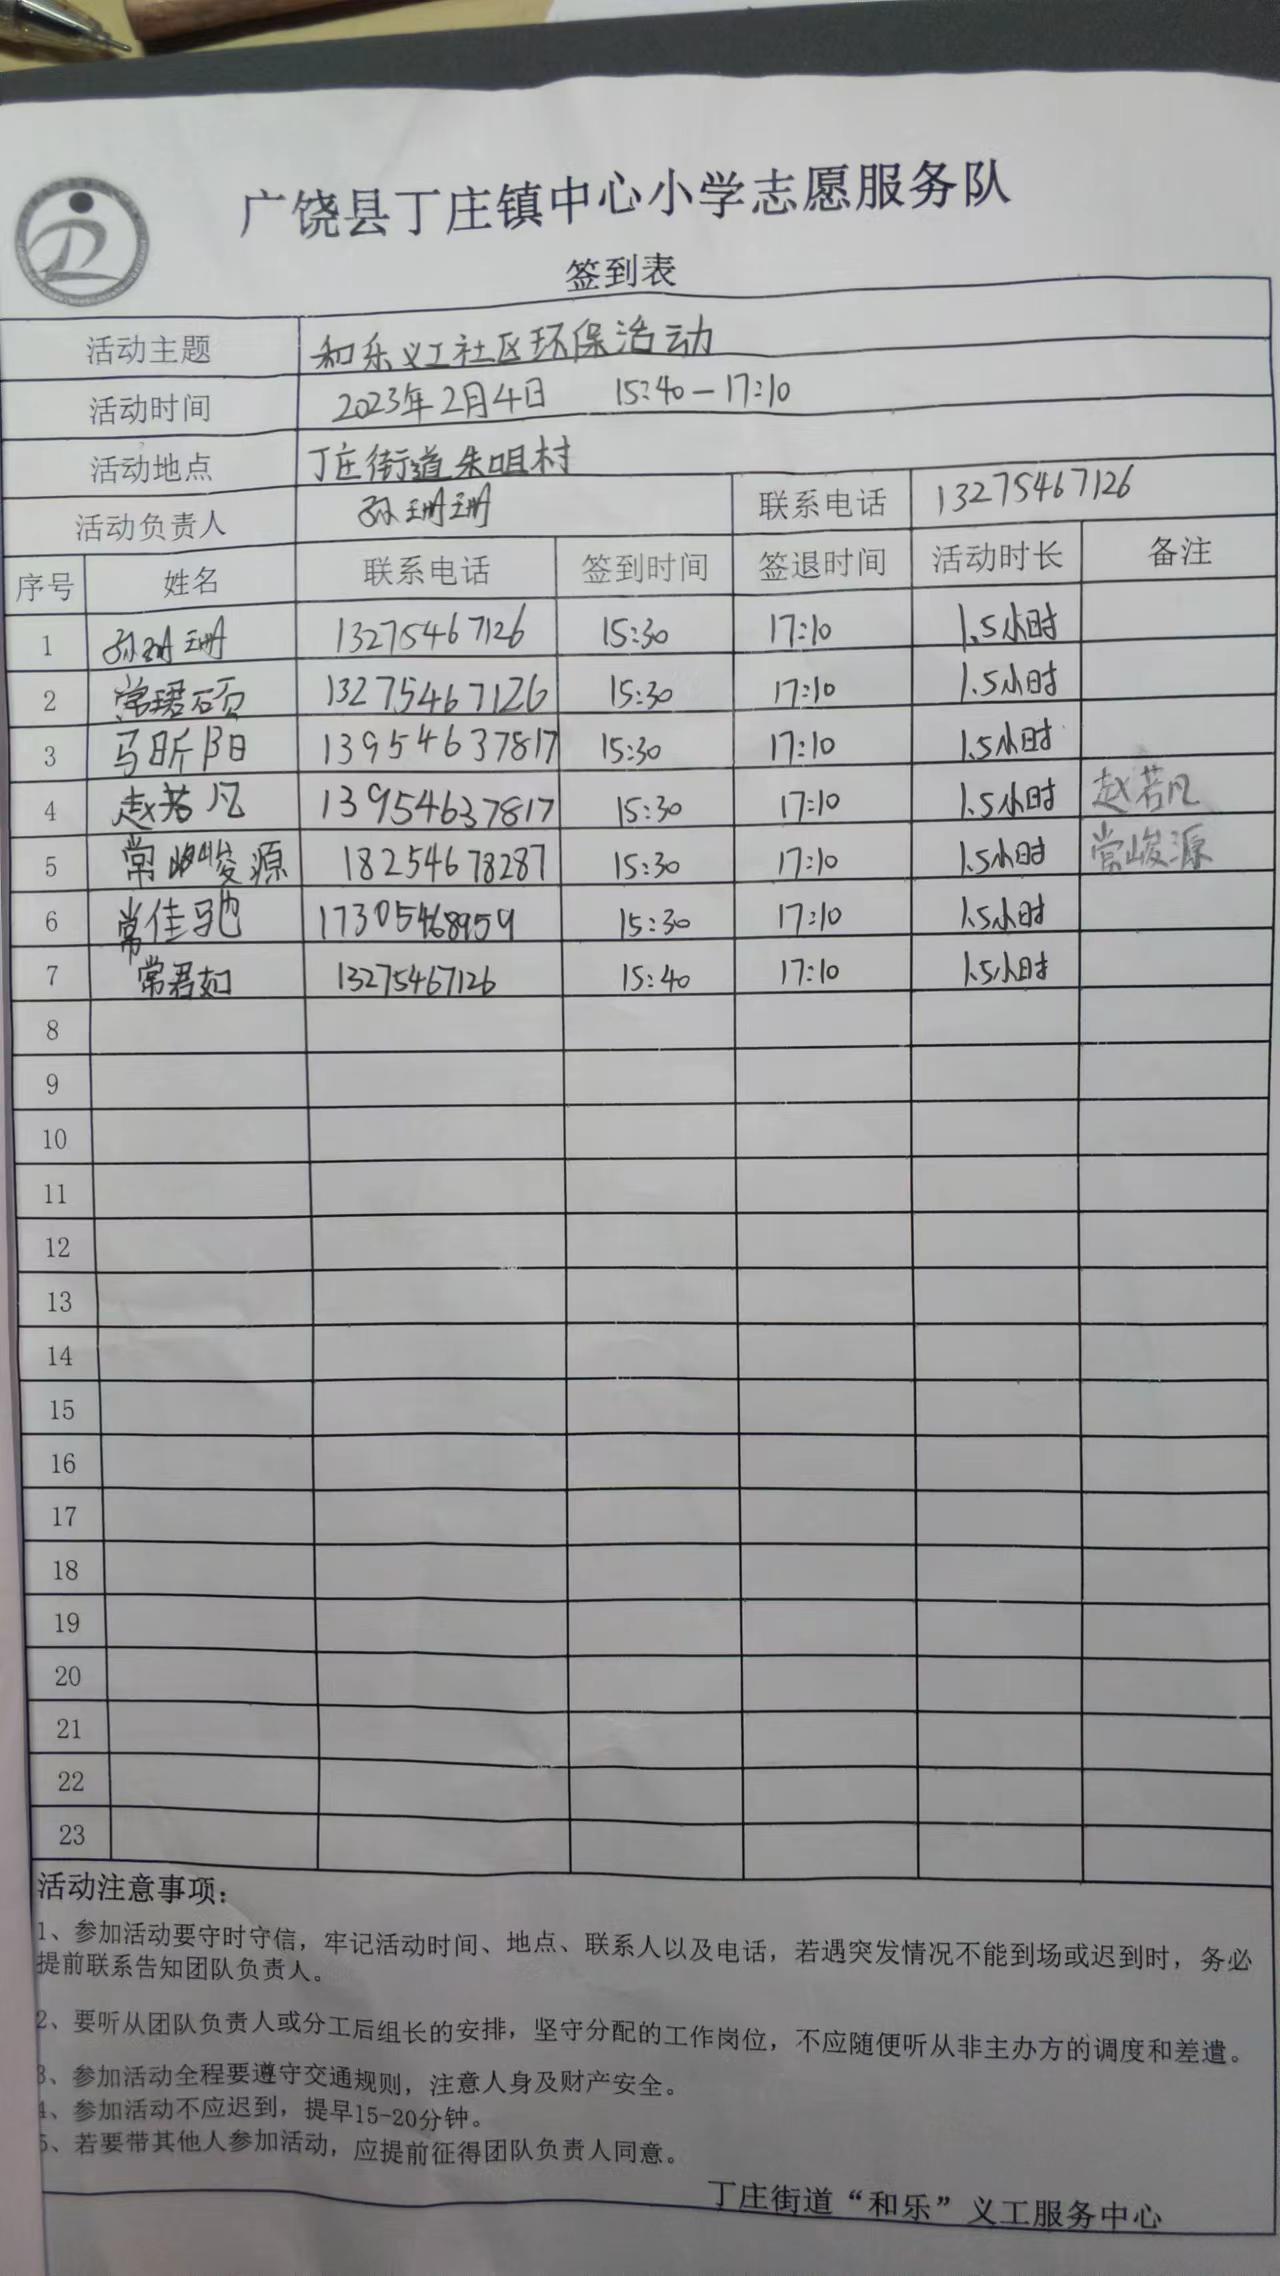 广饶县丁庄镇中心小学志愿服务队
签到表
活动主题 和乐义工社区环保活动
活动时间 2023年2月4日 15:40-17:10
活动地点 丁庄街道朱咀村
活动负责人 孙珊珊 联系电话 13275467126
序号 姓名 联系电话 签到时间 签退时间 活动时长 备注
1 孙珊珊 13275467126 15:30 17:10 1.5小时
2 常珺硕 13275467126 15:30 17:10 1.5小时
3 马昕阳 13954637817 15:30 17:10 1.5小时
4 赵若凡 13954637817 15:30 17:10 1.5小时 赵若凡
5 常峻源 18254678287 15:30 17:10 1.5小时 常峻源
6 常佳驰 17305468959 15:30 17:10 1.5小时
7 常君如 13275467126 15:40 17:10 1.5小时
8
9
10
11
12
13
14
15
16
17
18
19
20
21
22
23
活动注意事项：
1、参加活动要守时守信，牢记活动时间、地点、联系人以及电话，若遇突发情况不能到场或迟到时，务必
提前联系告知团队负责人。
2、要听从团队负责人或分工后组长的安排，坚守分配的工作岗位，不应随便听从非主办方的调度和差遣。
3、参加活动全程要遵守交通规则，注意人身及财产安全。
4、参加活动不应迟到，提早15-20分钟。
5、若要带其他人参加活动，应提前征得团队负责人同意。
丁庄街道“和乐”义工服务中心